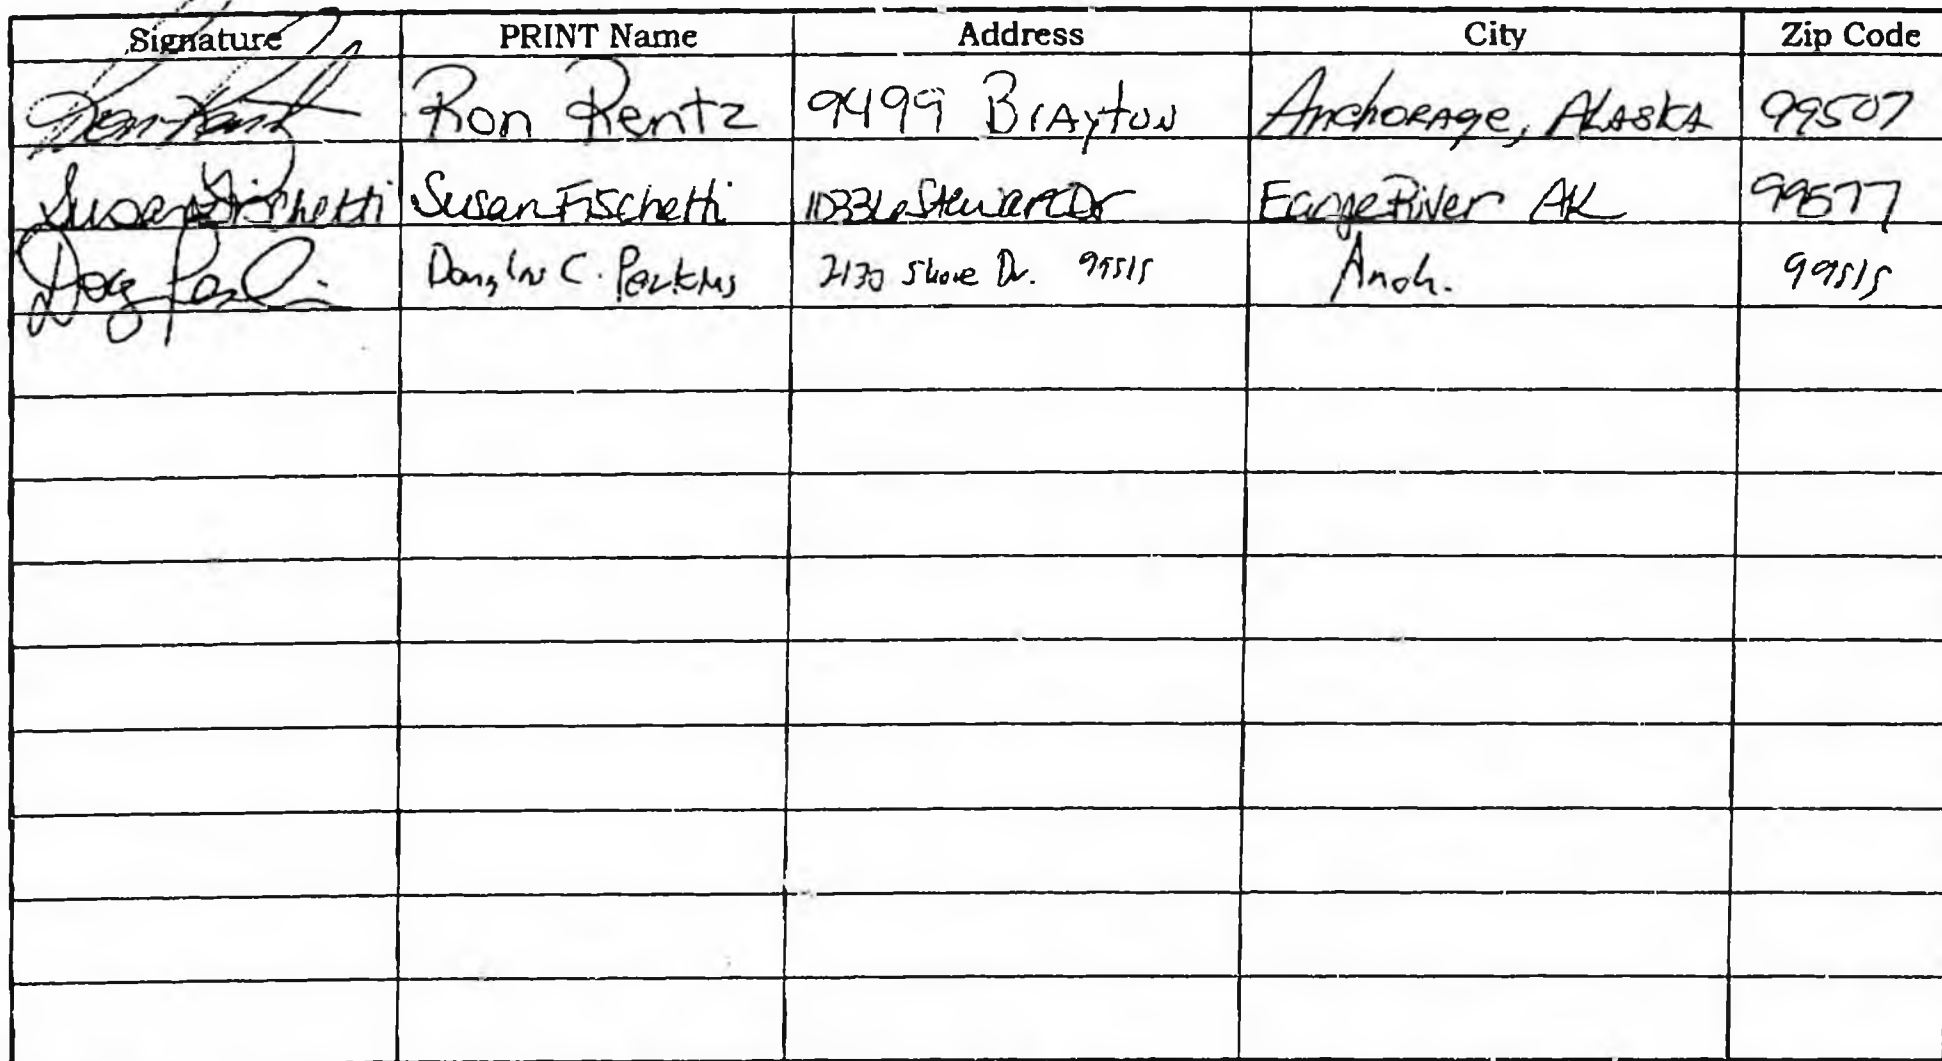 Signature PRINT Name Address City Zip Code
Ron Rentz 9499 Brayton Anchorage, Alaska 99507
Susan Fischetti Susan Fischetti Stewart Dr Eagle River AK 99577
Doug C. Perkins 2130 Shore Dr. 99515 Anch. 99515